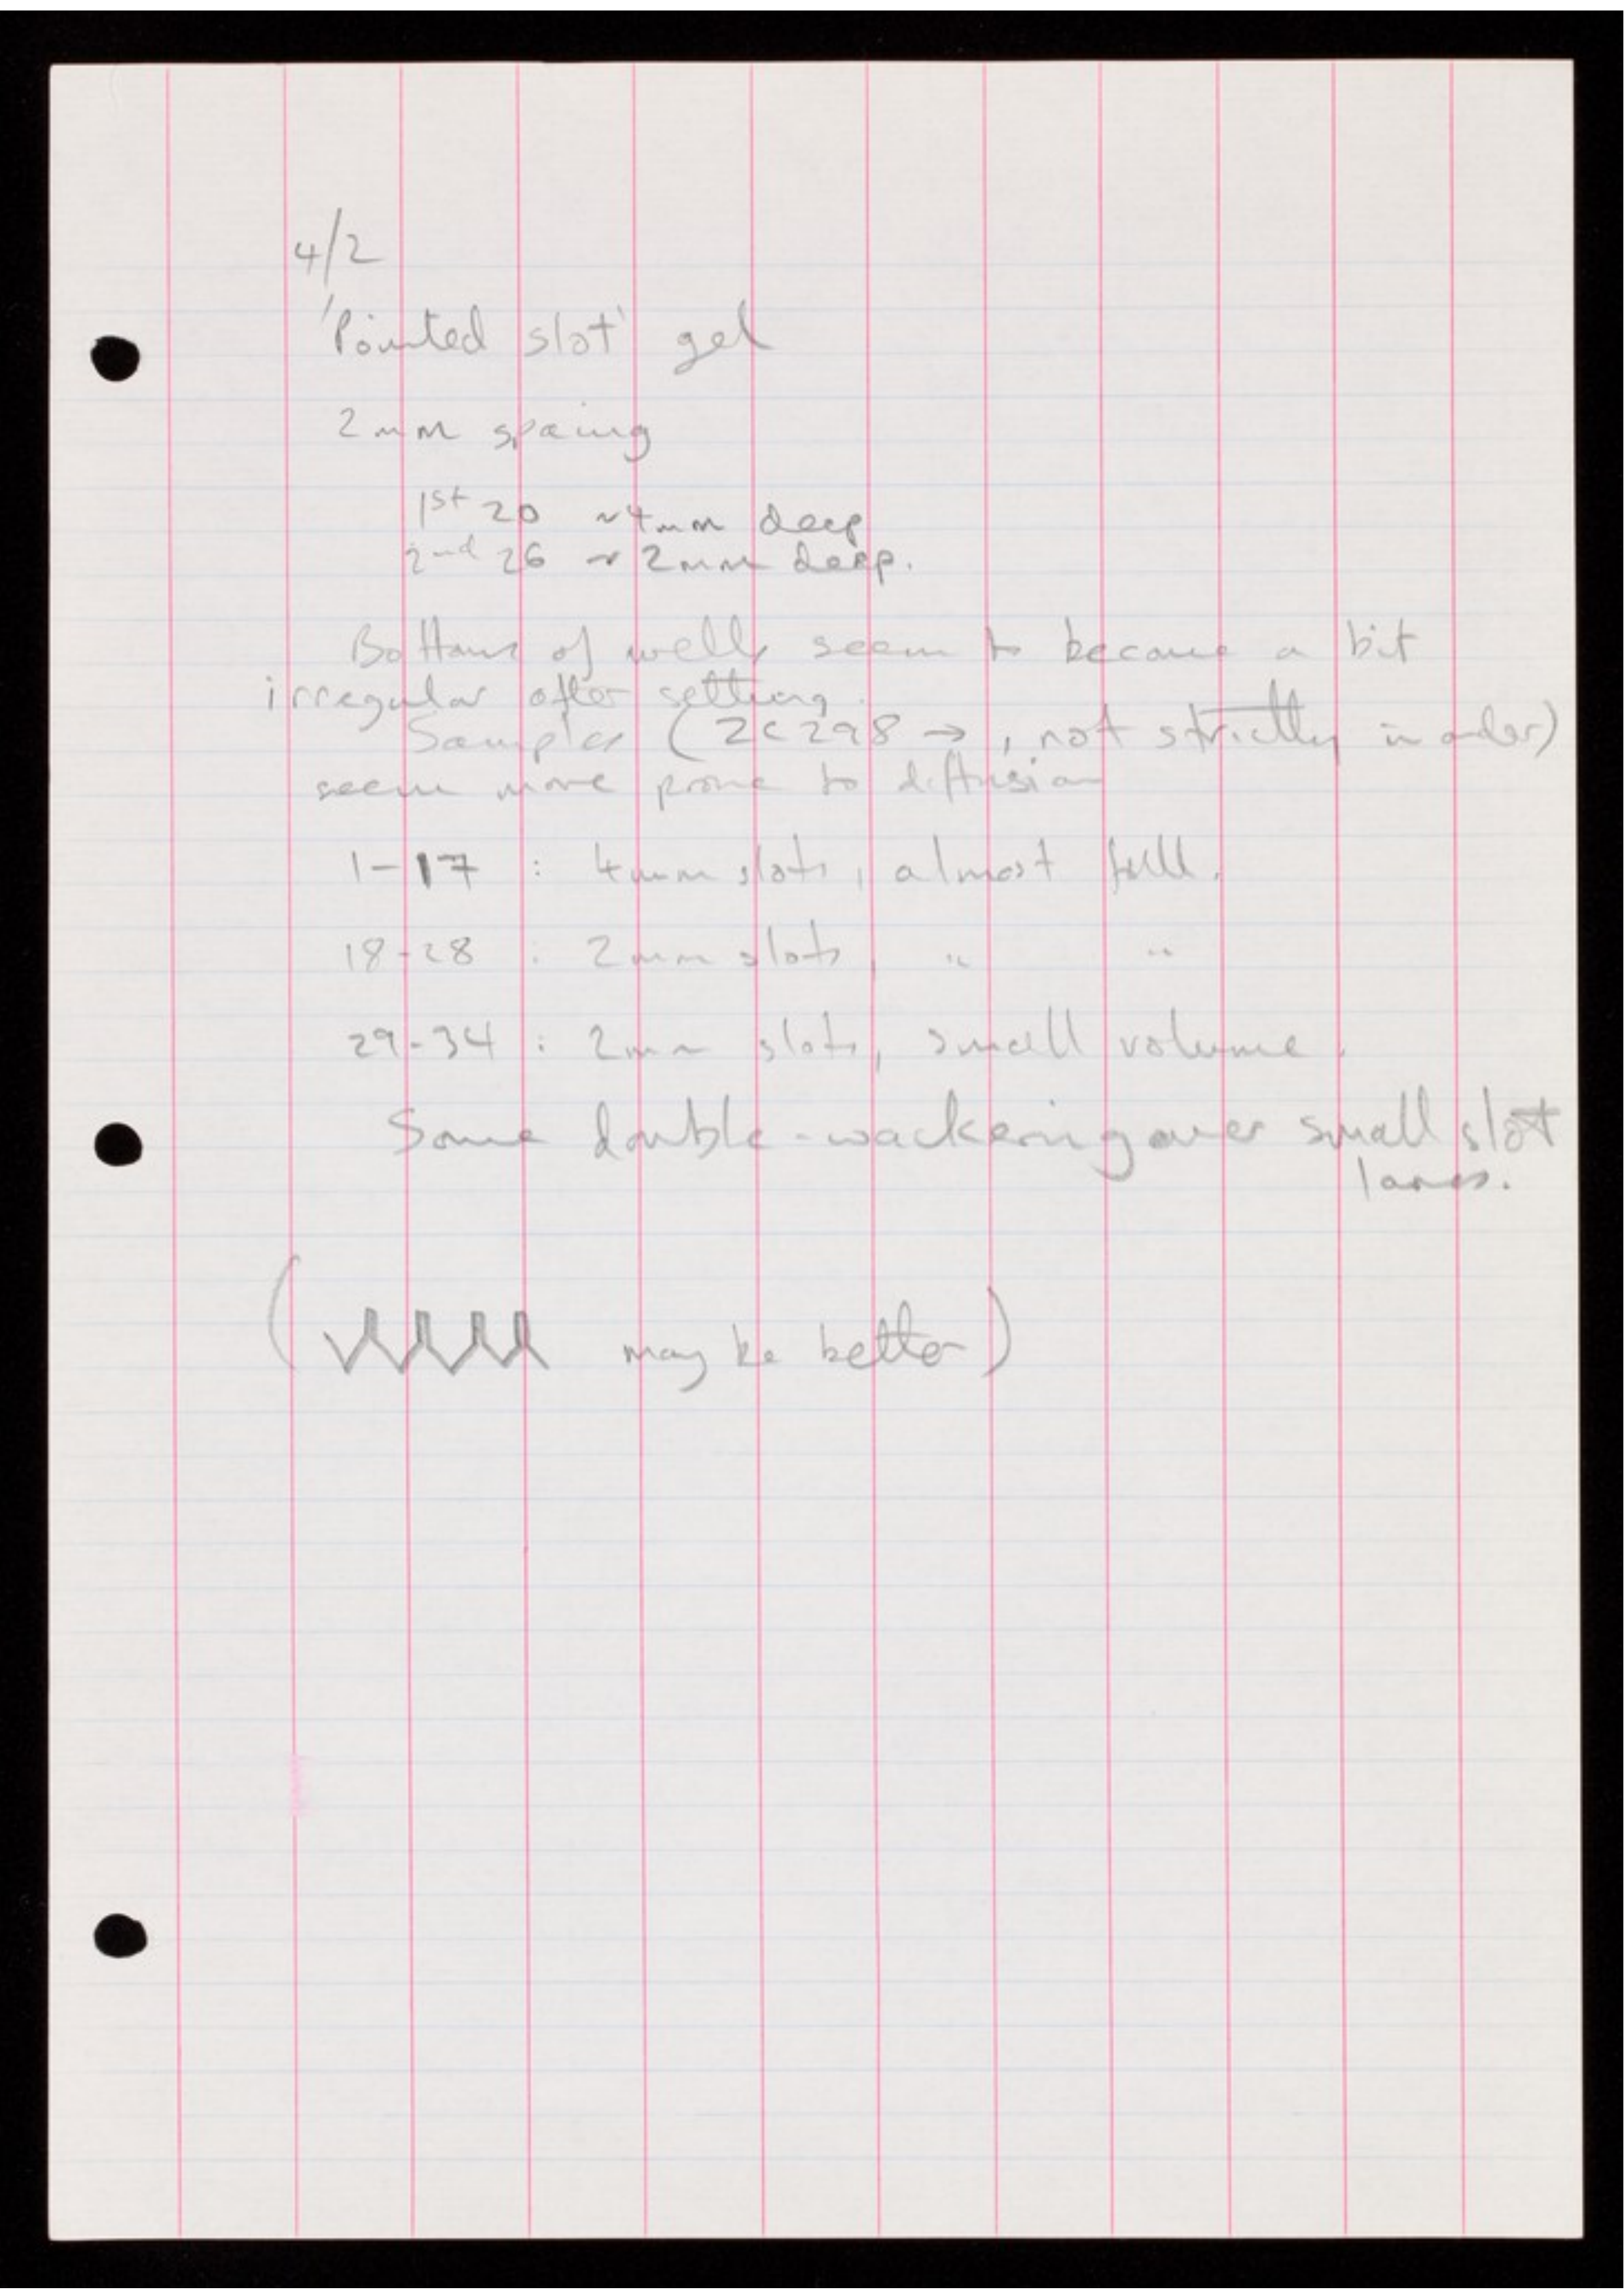 4/2
'Pointed slot' gel
2mm spacing
1st 20 ~4mm deep
2nd 26 ~ 2mm deep.
Bottoms of wells seem to become a bit
irregular after setting.
Samples (ZC298 →, not strictly in order)
seem more prone to diffusion
1-17 : 4mm slots, almost full.
18-28 : 2mm slots, " "
29-34 : 2mm slots, small volume.
Some double-wackering over small slot
lanes.
( may be better)